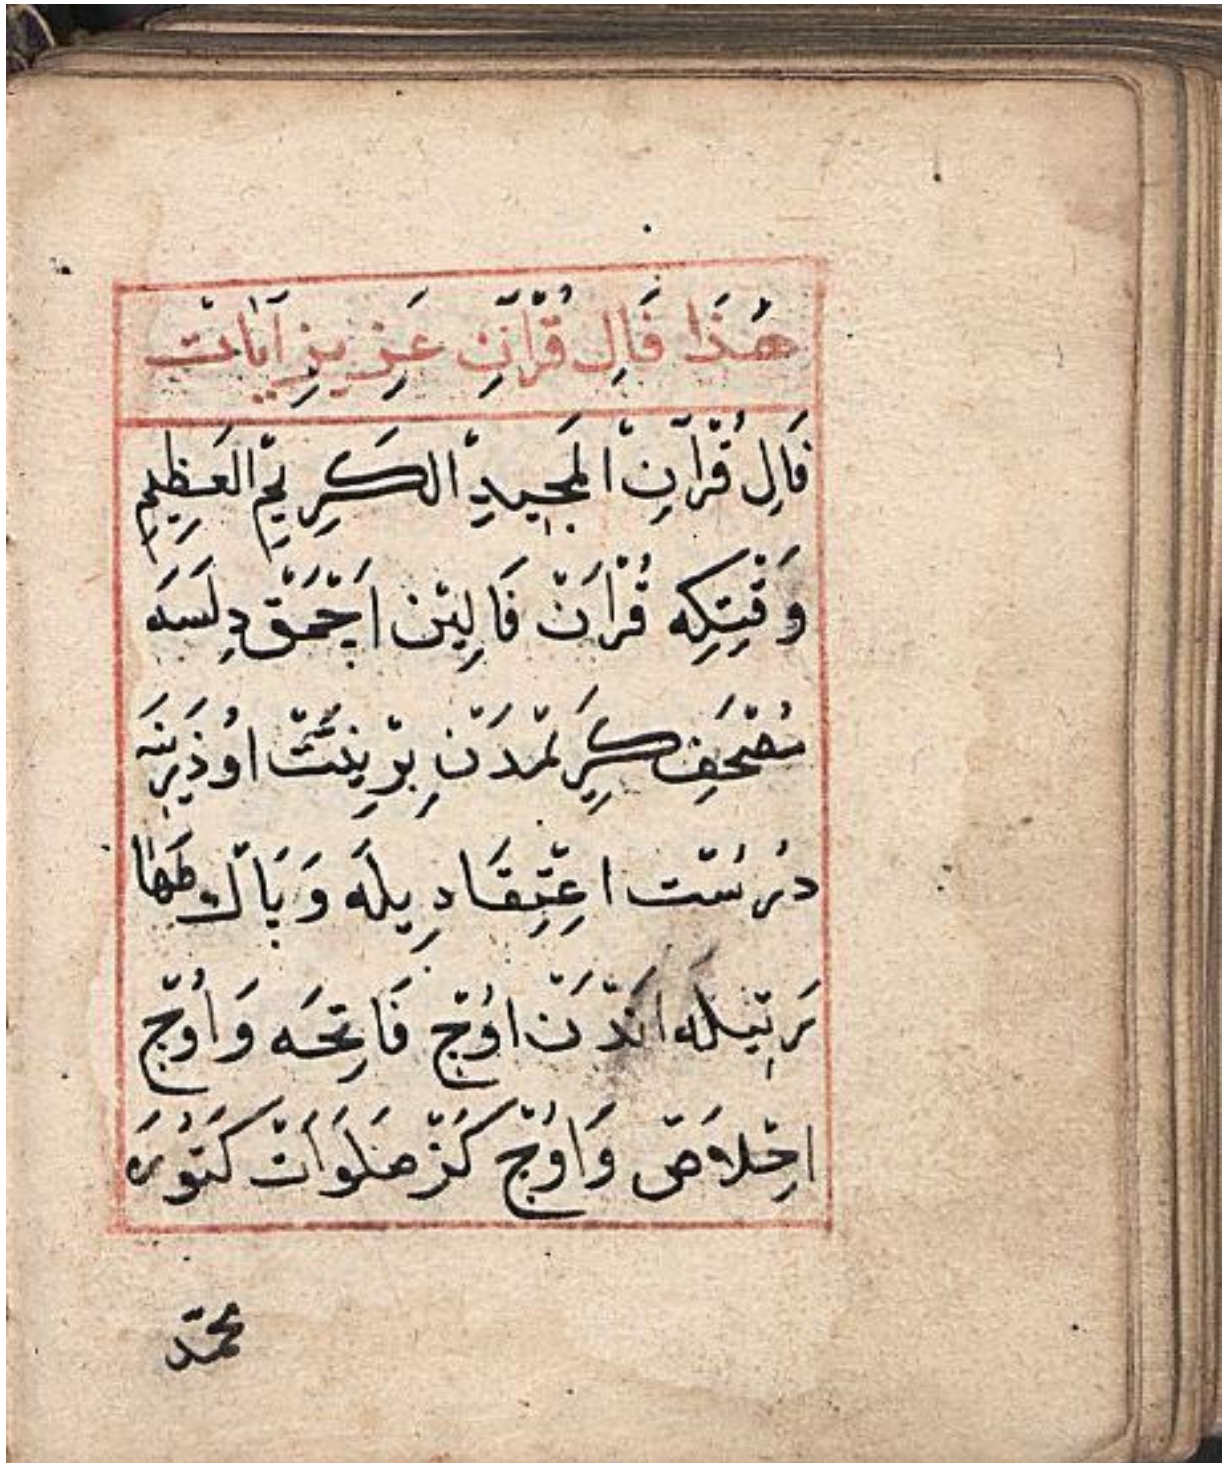 هٰذَا فَالِ قُرْآنِ عَزِيزِ آيَاتْ
فَالِ قُرْآنِ الْمَجِيدِ الْكَرِيمِ الْعَظِيمِ
وَقْتِكِه قُرْآنْ فَالِينْ اَچْمَقْ دِلَسَه
مُصْحَفِ كَرِيمْدَنْ بِرْ نِيَّتْ اُوزَرِينَه
دُرُسْتْ اِعْتِقَادِيلَه وَ پَاكْ طَهَا
رَتِيلَه اَنْدَنْ اُوچْ فَاتِحَه وَ اُوچْ
اِخْلَاصْ وَ اُوچْ كَزْ صَلَوَاتْ كَتُورَ
محمد